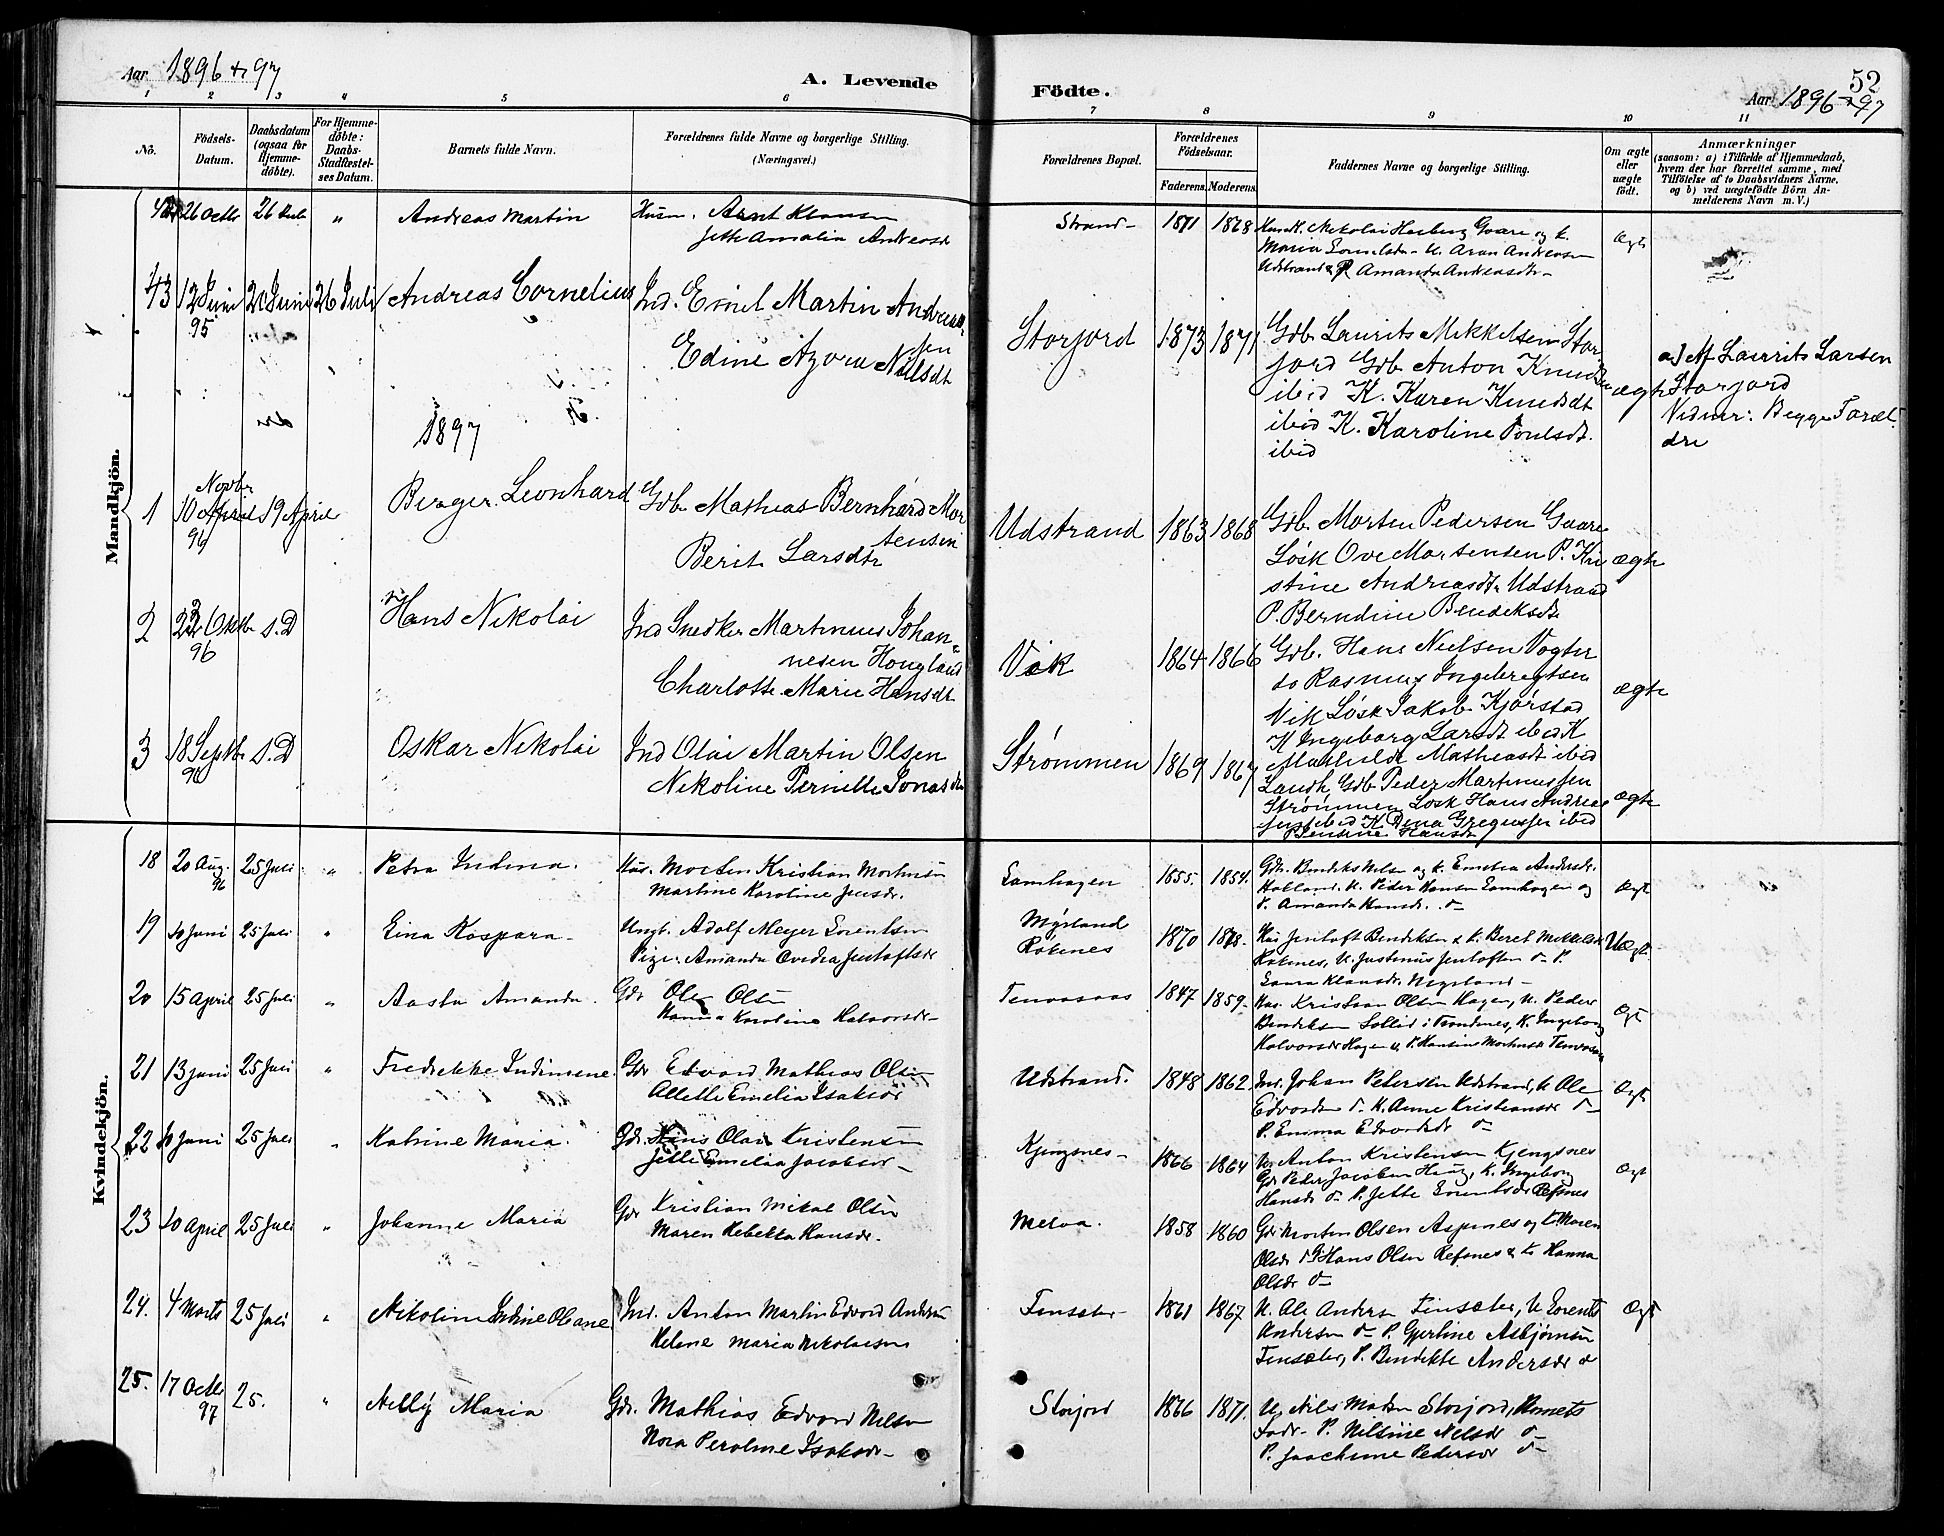 Aar 1896 + 97
A. Levende
Födte.
52
Aar 1896 + 97
1 2 3 4 5 6 7 8 9 10 11
No.
Födsels-Datum.
Daabsdatum (ogsaa for Hjemme-döbte).
For Hjemme-döbte: Daabs-Stadfæstel-ses Datum.
Barnets fulde Navn.
Forældrenes fulde Navne og borgerlige Stilling.
(Næringsvei.)
Forældrenes Bopæl.
Forældrenes Födselsaar.
Faderens. Moderens.
Faddernes Navne og borgerlige Stilling.
Om ægte eller uægte födt.
Anmærkninger
(saasom: a) i Tilfælde af Hjemmedaab,
hvem der har forrettet samme, med
Tilföielse af to Daabsvidners Navne,
og b) ved uægtefödte Börn An-
melderens Navn m. V.)
Mandkjön.
26 Octb 26 " Andreas Martin Husm. Arnt Klausen Strand 1871 1868 Nikolai Hasberg Gvare og k.
Jette Amalia Andreasdr Maria u. Aron Andreasen
Udstrand & P. Amanda Andreasdtr Ægte
43 12 Juni 95 21 Juni 26 Juli Andreas Cornelius Ind. Emil Martin Andreas-
sen
Edine Azora Nilsdt
Storjord 1873 1871 Gdb Laurits Mikkelsen Stor-
jord Gdb Anton Knudsen
ibid K. Karen Knudsdt
ibid K. Karoline Poulsdt.
ibid
ægte
a) Af Laurits Larsen
Storjord
Vidner: Begge Foræl
dre
1897
1 10 Novbr 96 19 April Berger Leonhard Gdb Mathias Bernhard Mor
tensen
Berit Larsdtr
Udstrand 1863 1868 Gdb. Morten Pedersen Gvare
Løsk Ove Mortensen P. Kri
stine Andreasdt. Udstrand
P. Berndine Bendeksdt.
ægte
2 22 Oktb 96 s. D Hans Nikolai Ind Snedker Martinus Johan-
nesen Hougland
Charlotte Marie Hansdt
Vik 1864 1866 Gdb. Hans Nielsen Vogter
do Rasmus Ingebregtsen
Vik Løsk Jakob Kjørstad
K Ingeborg Larsdt ibid K
Mathilde Mathiasdt ibid
ægte
3 18 Septbr 96 s. D Oskar Nikolai Ind Olai Martin Olsen
Nikoline Pernille Jonasdr
Strømmen 1869 1867 Gdb Peder Martinussen
Strømmen Løsk Hans Andreas
sen ibid K Dina Gregussen ibid
Hansdt
ægte
Kvindekjön.
18 20 Aug. 96 25 Juli " Petra Indma. Hus. Morten Kristian Mortensen
Martine Karoline Jensdr.
Samhagen 1855. 1854. Gdr. Bendiks Nelsen og k. Emelia Andersdr.
Holland. U. Peder Hansen Samhagen og
P. Amanda Hansdr. do Ægt
19 10 Juni 25 Juli " Eina Kaspara Ungk. Adolf Meyer Sorentsen
Pige. Amanda Ovedia Jentoftsdr
Myrland
Rokenes 1870 1878 Hus Jentoft Bendiksen & k. Beret Mikkelsdr
Rokenes, U. Justinus Jentoften do P.
Laura Klausdr. Myrland
Uægt
20 15 April 25 Juli " Aasta Amanda. Gdr Ole Olsen
Hanna Karoline Halvorsdr
Tenvasaas 1847 1859 Hus. Kristian Olsen Hagen, U. Peder
Bendiksen Sollid i Trondenes, K. Ingeborg
Halvorsdr Hagen u. P. Hansine Mortensdr Tenvasaas
Ægt
21 13 Juni 25 Juli " Fredrikke Indimene Gdr Edvard Mathias Olsen
Allette Emelia Isaksdr
Udstrand. 1848 1862. Ind. Johan Petersen Udstrand, U Ole
Edvardsen do K. Anne Kristiansdr do
P. Emma Edvardsdr do
Ægt
22 10 Juni 25 Juli " Katrine Maria. Gdr. Hans Olai Kristensen
Jette Emelia Jacobsdr
Kjengsnes 1866 1864 U. Anton Kristensen Kjengsnes
Gdr Peder Jacobsen Haug, K. Ingeborg
Hansdr do P. Jette Sorentsdr Refsnes
Ægt
23 10 April 25 Juli " Johanne Maria Gdr Kristian Mikal Olsen
Maren Rebekka Hansdr.
Melvaa. 1858 1860 Gdr Morten Olsen Aspenes og k. Maren
Olsdr do Hans Olsen Refsnes & k Hanna
Olsdr do
24. 4 Marts 25 Juli " Nikoline Indine Oleane Ind. Anton Martin Edvard Andersen
Helene Maria Nikolaisen
Tensæter 1861 1867 U. Ole Andersen Tensæter, U Sorents
Andersen do P. Gjertine Asbjørnsen
Tensæter, P. Bendikte Andersdr do
Ægt
25. 17 Octb 97 25. " Nelly Maria Gdr. Mathias Edvard Nelsen
Nora Peroline Isaksdr
Storjord 1866 1871. U. Nils Madsen Storjord, Barnets
Fadr P. Nilsine Nelsdr do
P. Joachime Pedersdr do